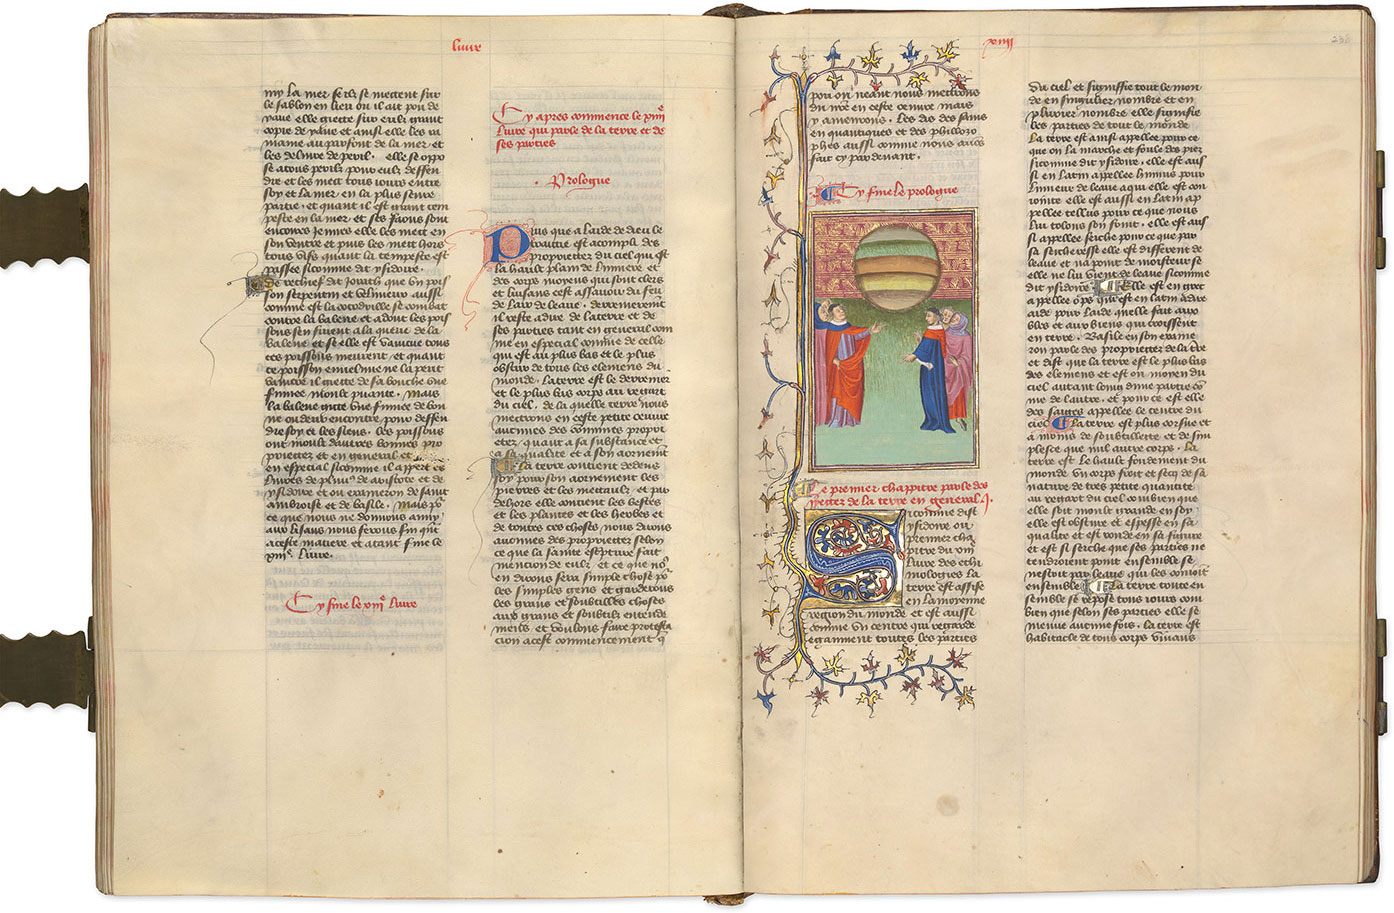 livre
my la mer se ilz se mettent sur
le sablon en lieu ou il ait pou de
eaue elle giette sur eulx grant
copie de eaue et ainsi elle les ra
maine au parfont de la mer et
les delivre de peril. elle est oppo
se a tous perilz pour eulx deffen
dre et les mect tous iours entre
soy et la mer en la plus seure
partie. et quant il est grant tem
peste en la mer et ses faons sont
encores iennes elle les mect en
son ventre et puis les mect hors
tous vifs quant la tempeste est
passee sicomme dit ysidoire.
De rechief dit Jorath que un pois
son serpentin et velimeux aussi
comme est la cocodrille se combat
contre la balene et adont les pois
sons sen fuient a la queue de la
balene et se elle est vaincue tous
ces poissons meurent et quant
ce poisson envelime ne la peut
vaincre il giette de sa bouche une
fumee moult puante. mais
la balene gitte une fumee de bon
ne oudeur encontre pour deffen
dre soy et les siens. les poissons
ont moult dautres bonnes pro
prietez et en general et
en especial sicomme il appert es
livres de plinius de aristote et de
ysidoire et ou exameron de saint
ambroise et de basile. mais po
ce que nous ne donnons
aux lisans nous ferons fin quant
a ceste matiere et atant fine le
xiii livre.
Cy fine le xiii livre
Cy apres commence le xiiii
livre qui parle de la terre et de
ses parties
Prologue
Puis que a laide de dieu le
traictie est acompli des
proprietez du ciel qui est
la hault plain de lumiere et
des corps moyens qui sont clers
et luisans cest assavoir du feu
de lair de leaue. derrenierement
il reste a dire de la terre et de
ses parties tant en general com
me en especial comme de celle
qui est au plus bas et le plus
obscur de tous les elemens du
monde. la terre est le derrenier
et le plus bas corps au regart
du ciel. de la quelle terre nous
mectrons en ceste petite oeuvre
aucunes des communes proprie
tez. quant a sa substance et
a sa qualite et a son aornement
la terre contient dedens
soy pour son aornement les
pierres et les metraulx et par
dehors elle contient les bestes
et les plantes et les herbes et
de toutes ces choses nous dirons
aucunes des proprietez selon
ce que la sainte escripture fait
mencion de eulx et ce que nous
en dirons sera simple chose pour
les simples gens et garderons
les grans et soubtilles choses
aux grans et soubtilz entende
mens et voulons faire protesta
cion a cest commencement que
xiiii
pou ou neant nous mectrons
du nostre en ceste oeuvre mais
y amenrons. les dis des sains
en quantiques et des philozo
phes aussi comme nous avons
fait cy par devant.
Cy fine le prologue
Le premier chappitre parle des
proprietez de la terre en general.
Sicomme dist
ysidoire ou
premier cha
pitre du xiiii
livre des ethi
mologies la
terre est assise
en la moyenne
region du monde et est aussi
comme un centre qui regarde
egaument toutes les parties
du ciel et signifie tout le mon
de en singulier nombre et en
plurier nombre elle signifie
les parties de tout le monde
La terre est ainsi appellee pour ce
que on la marche et foule des piez
sicomme dit ysidoire. elle est aus
si en latin appellee humus pour
lumeur de leaue a qui elle est con
ioincte. elle est aussi en latin ap
pellee tellus pour ce que nous
lui tolons son fruit. elle est aus
si appellee seiche pour ce que par
sa seicheresse elle est differente de
leaue et na point de moisteur se
elle ne lui vient de leaue sicomme
dit ysidoire elle est en grec
appellee ops qui est en latin a dire
aide pour laide quelle fait aux
bles et aux biens qui croissent
en terre. Basile en son exame
ron parle des proprietez de la terre
et dist que la terre est le plus bas
des elemens et est ou moyen du
ciel autant loing dune partie com
me de lautre. et pour ce est elle
des sains appellee le centre du
ciel la terre est plus corsue et
a moins de soubtillete et de sim
plesce que nul autre corps. la
terre est le hault fondement du
monde un corps froit et sec de sa
nature de tres petite quantite
au regart du ciel combien que
elle soit moult grande en soy
elle est obscure et espesse en sa
qualite et est ronde en sa figure
et est si seiche que ses parties ne
tendroient point ensemble se
nestoit par leaue qui les conioint
ensemble la terre toute en
semble se repose tous iours com
bien que selon ses parties elle se
mouve aucune fois. la terre est
habitacle de tous corps vivans